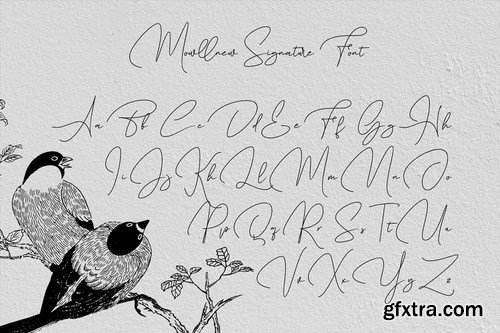 Mowllnew Signature Font
Aa Bb Cc Dd Ee Ff Gg Hh
Ii Jj Kk Ll Mm Nn Oo
Pp Qq Rr Ss Tt Uu
Vv Xx Yy Zz
gfxtra.com